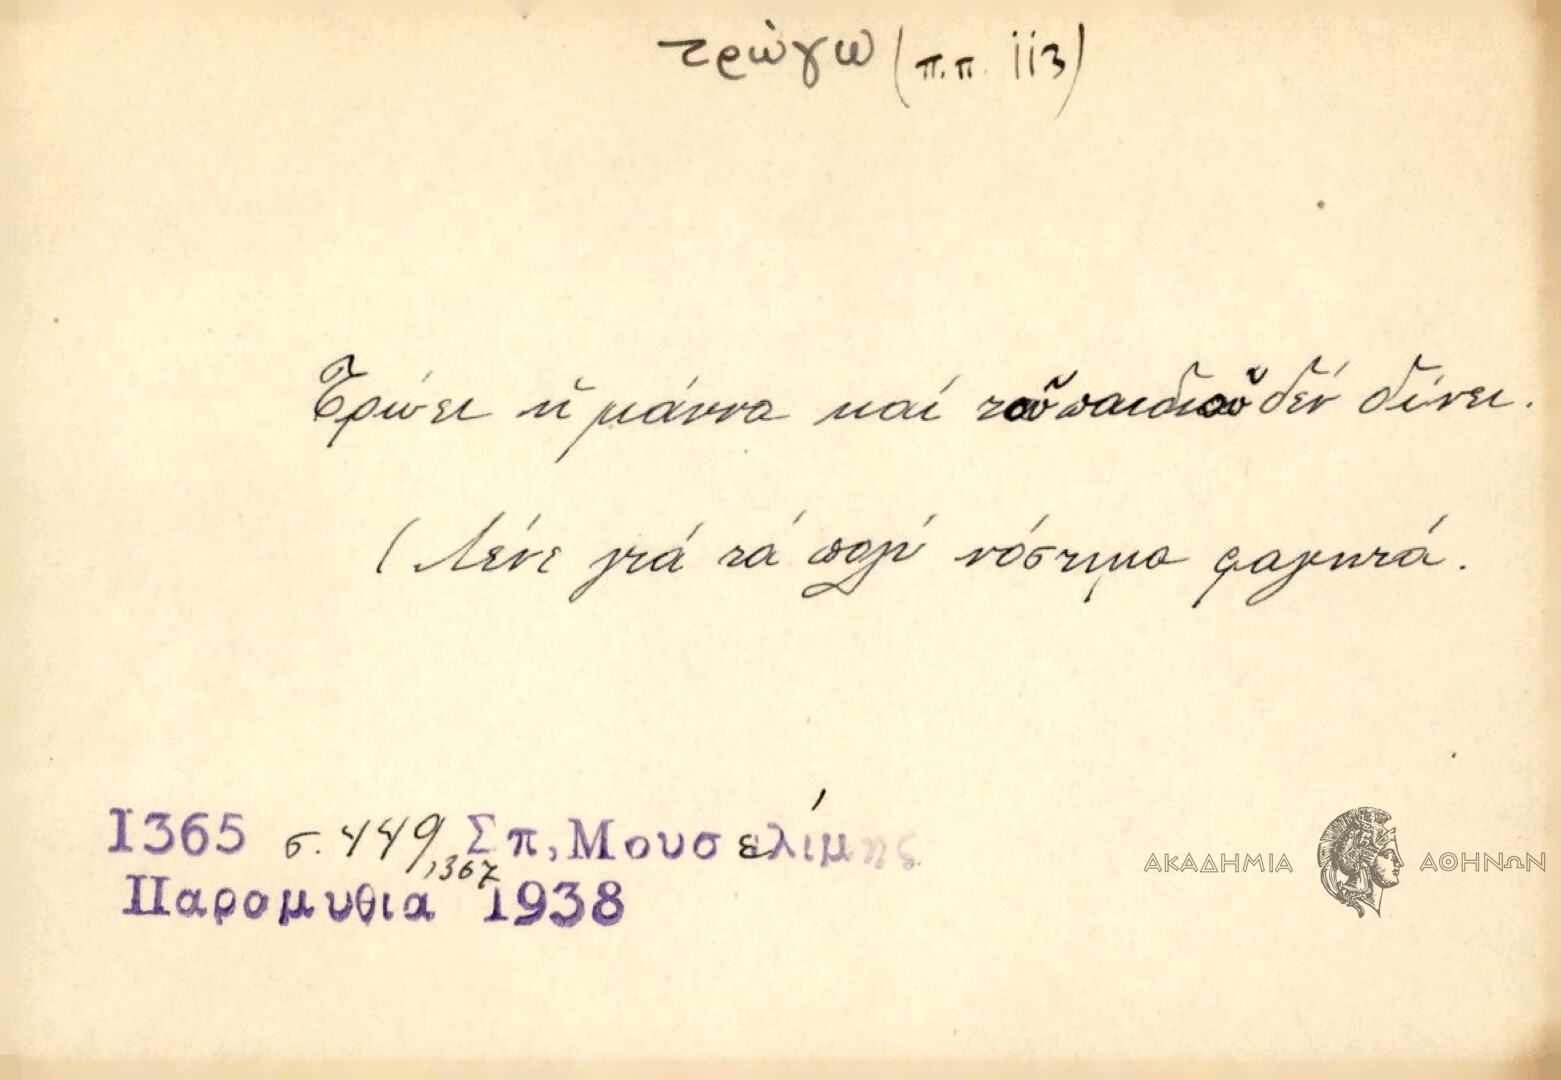 τρώγω (π.π. 113)
Τρώει ἡ μάννα καί τοῦ παιδιοῦ δέν δίνει.
(Λένε γιά τά πολύ νόστιμα φαγητά.
1365 σ. 449, 367 Σπ, Μουσελίμης
Παραμυθια 1938
ΑΚΑΔΗΜΙΑ ΑΘΗΝΩΝ